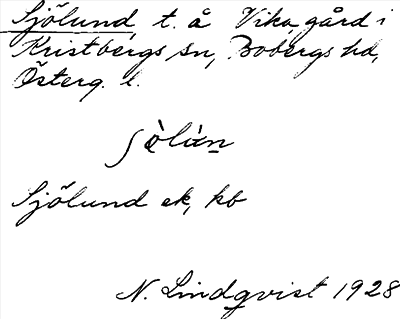 Sjölund, t. å Vika gård i
Kristbergs sn, Bobergs hd,
Österg. l.
ʃö̀lún
Sjölund ek, kb
N. Lindqvist 1928